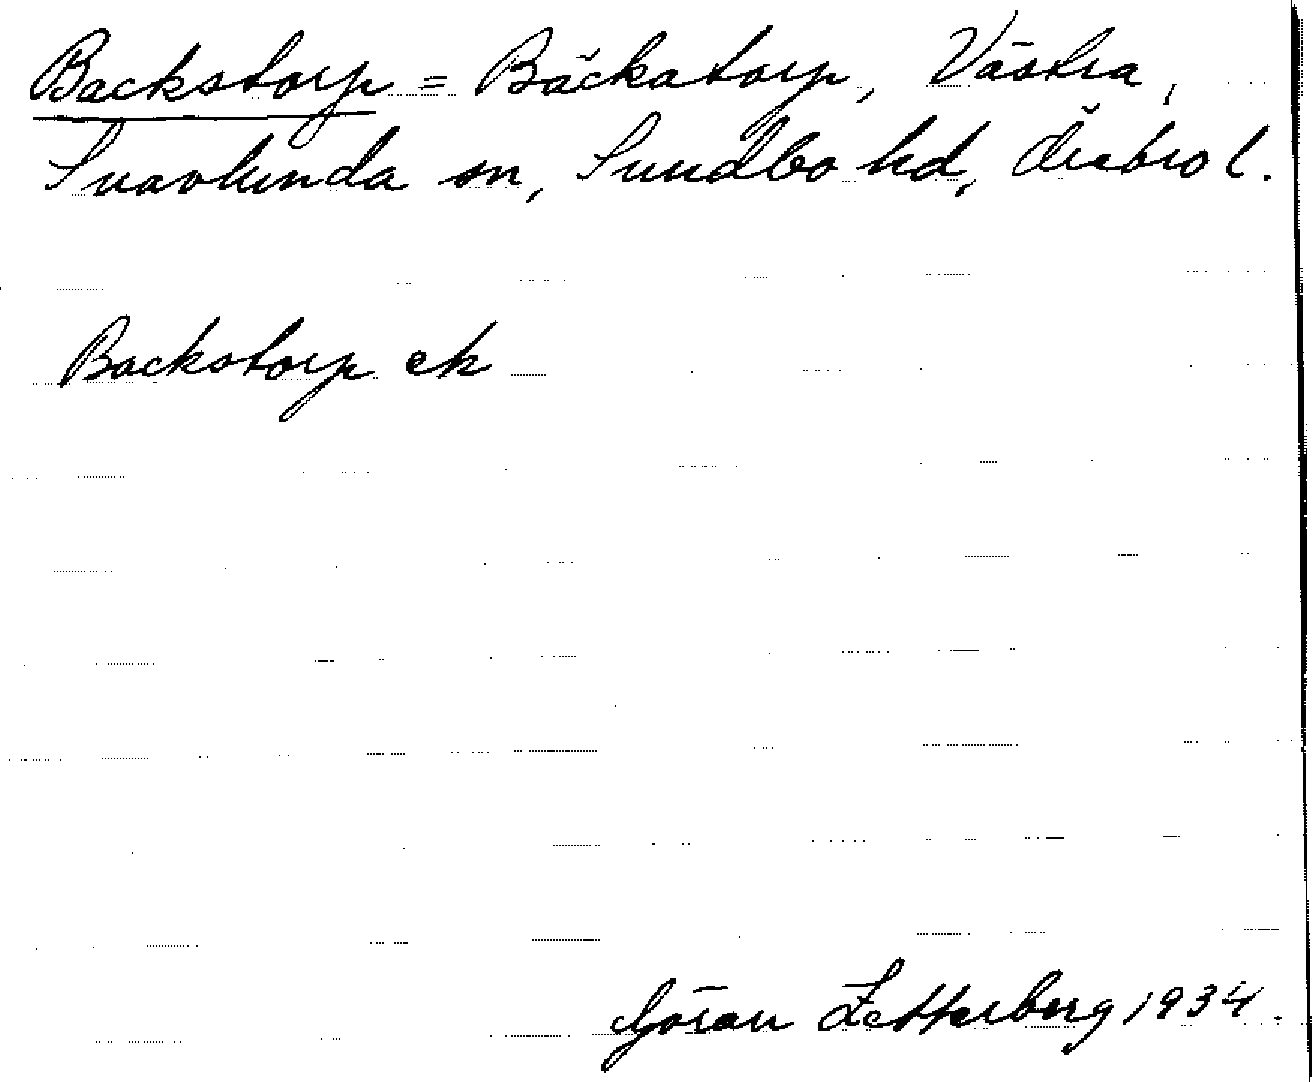 Backstorp = Bäckatorp, Västra,
Snavlunda sn, Sundbo hd, Örebro l.
Backstorp ek
Göran Zetterberg 1934.